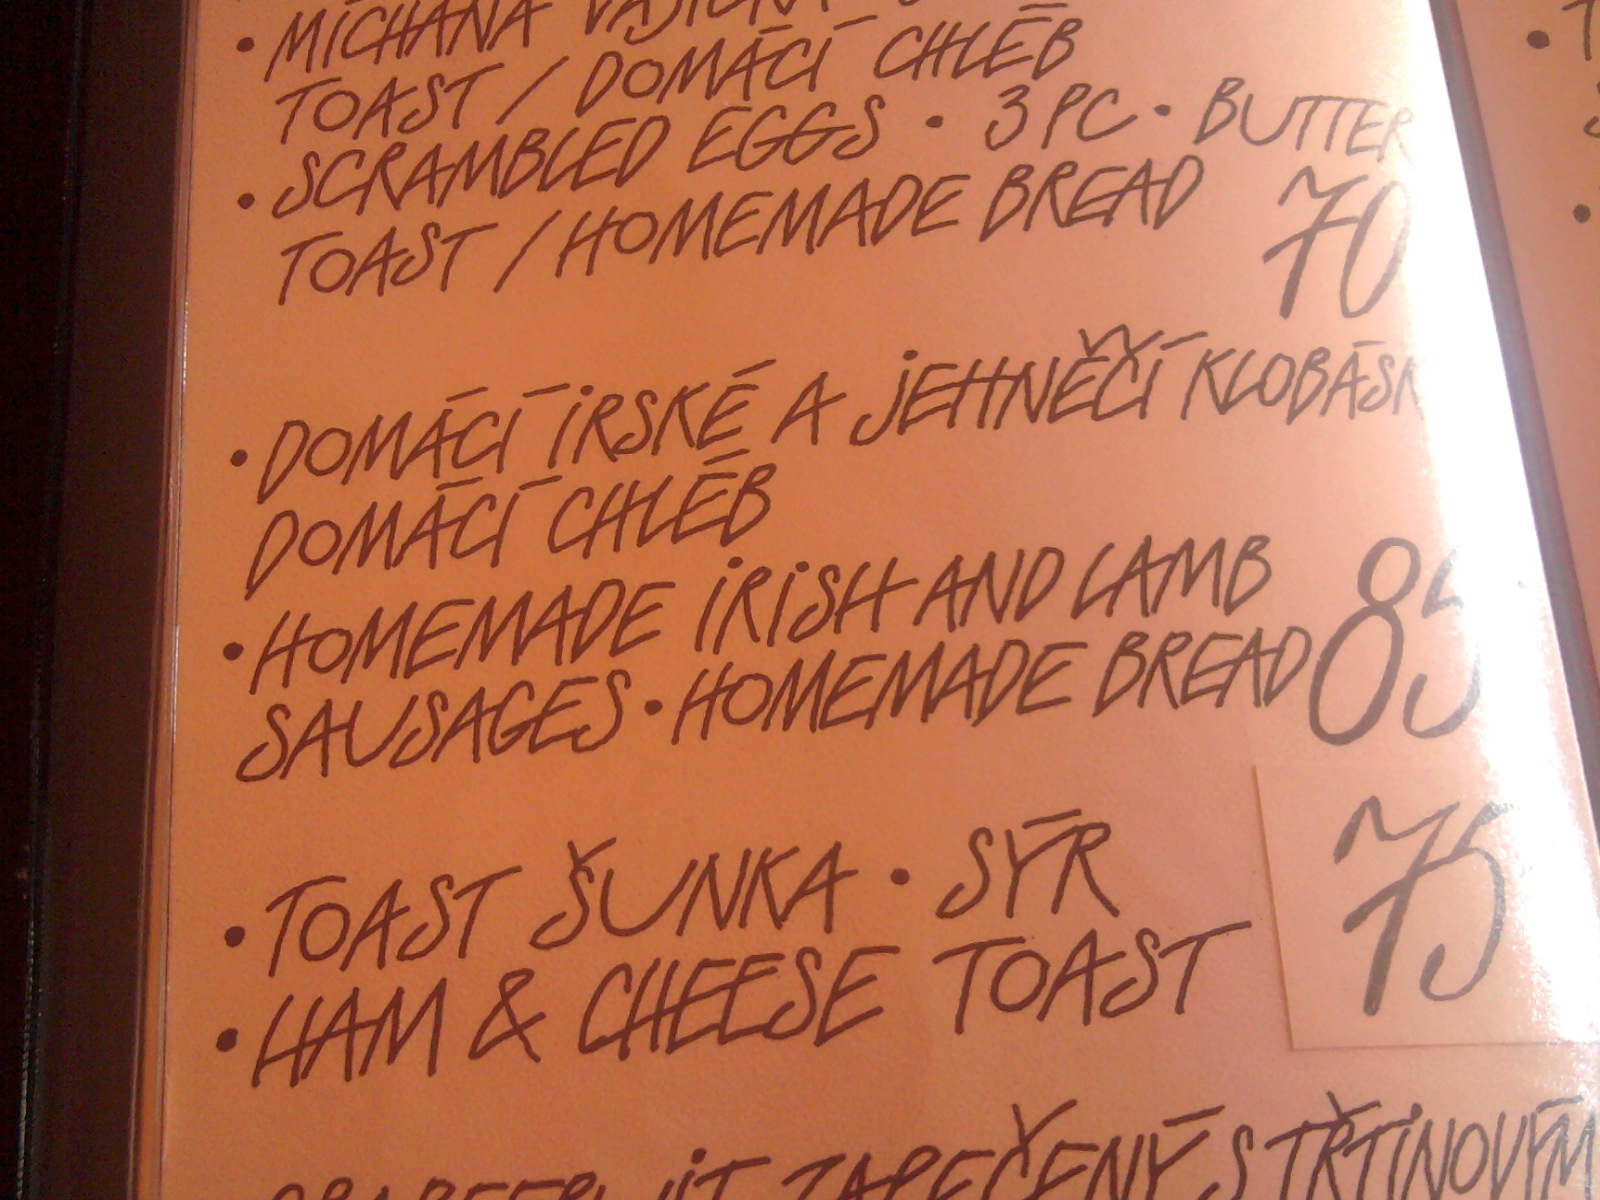 • MÍCHANÁ
TOAST / DOMÁCÍ CHLÉB
• SCRAMBLED EGGS • 3 PC • BUTTER
TOAST / HOMEMADE BREAD 70
• DOMÁCÍ IRSKÉ A JEHNĚČÍ
DOMÁCÍ CHLÉB
• HOMEMADE IRISH AND LAMB
SAUSAGES • HOMEMADE BREAD 85
• TOAST ŠUNKA • SÝR
• HAM & CHEESE TOAST 75
ZAPEČENÝ S TŘTINOVÝM